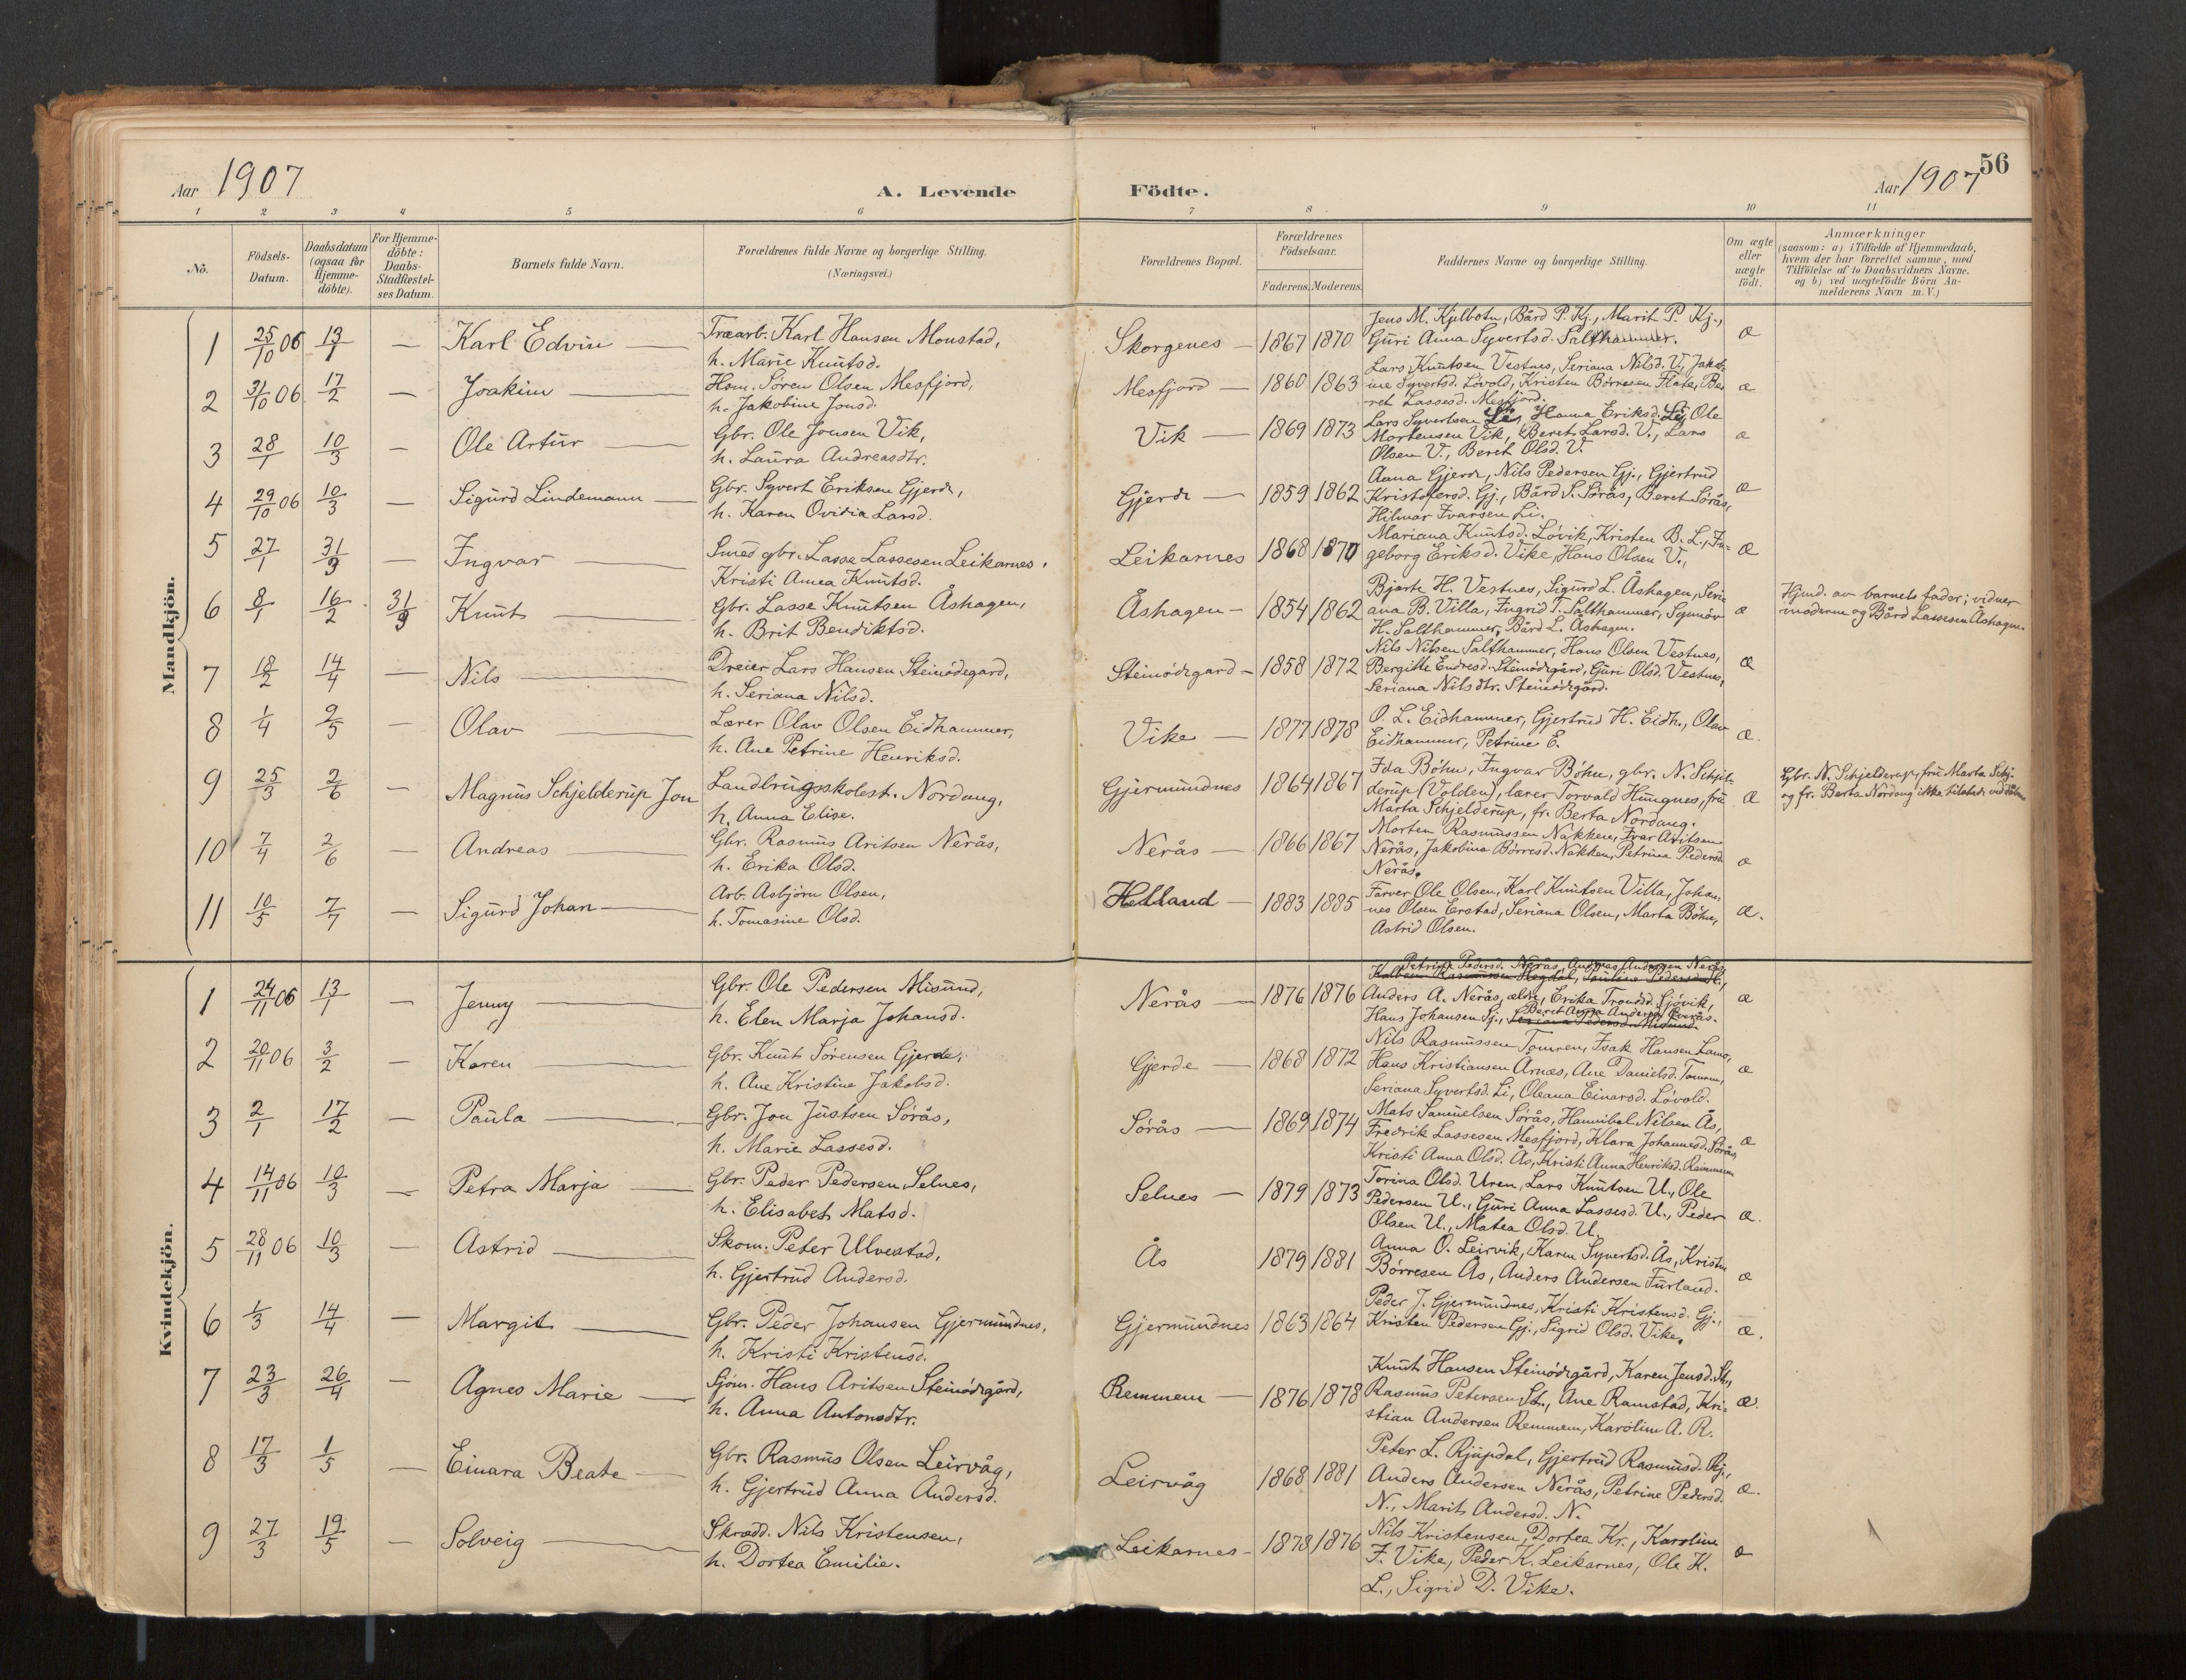 56
Aar 1907
A. Levende Födte.
Aar 1907
1 2 3 4 5 6 7 8 9 10 11
No.
Födsels-Datum.
Daabsdatum (ogsaa for Hjemme-döbte).
For Hjemme-döbte: Daabs-Stadfæstel-ses Datum.
Barnets fulde Navn.
Forældrenes fulde Navne og borgerlige Stilling. (Næringsvei.)
Forældrenes Bopæl.
Forældrenes Födselsaar.
Faderens. Moderens.
Faddernes Navne og borgerlige Stilling.
Om ægte eller uægte födt.
Anmærkninger
(saasom: a) i Tilfælde af Hjemmedaab,
hvem der har forrettet samme, med
Tilföielse af to Daabsvidners Navne,
og b) ved uægtefödte Börn An-
melderens Navn m. V.)
Mandkjön.
1 25/10 06 13/1 — Karl Edvin — Træarb. Karl Hansen Monstad, Skorgenes — 1867 1870 Jens M. Kjelbotn, Bård P. Kj., Marit P. Kj., æ
h. Marie Knutsd. Guri Anna Syvertsd. Salthammer.
2 31/10 06 17/2 — Joakim — Hsm. Sören Olsen Mesfjord, Mesfjord — 1860 1863 Lars Knutsen Vestnes, Seriana Nilsd. V., Jakob- æ
h. Jakobine Jonsd. ine Syvertsd. Lövold, Kristen Börresen Flate, Be-
ret Lassesd. Mesfjord.
3 28/1 10/3 — Ole Artur — Gbr. Ole Jonsen Vik, Vik — 1869 1873 Lars Syvertsen Li, Hanna Eriksd. Li, Ole æ
h. Laura Andreasdtr. Mortensen Vik, Beret Larsd. V., Lars
Olsen V., Beret Olsd. V.
4 29/10 06 10/3 — Sigurd Lindemann — Gbr. Syvert Eriksen Gjerde, Gjerde — 1859 1862 Anna Gjerde, Nils Pedersen Gj., Gjertrud æ
h. Karen Ovidia Larsd. Kristofersd. Gj., Bård S. Sörås, Beret Sörås,
Hilmar Ivarsen Li.
5 27/1 31/3 — Ingvar — Smed gbr. Lasse Lassesen Leikarnes, Leikarnes 1868 1870 Mariana Knutsd. Lövik, Kristen B. L., In- æ
Kristi Anna Knutsd. geborg Eriksd. Vike, Hans Olsen V.,
6 8/1 16/2 31/3 Knut — Gbr. Lasse Knutsen Åshagen, Åshagen — 1854 1862 Bjarte H. Vestnes, Sigurd L. Åshagen, Seri- æ Hjmd. av barnets fader; vidner
h. Brit Bendiktsd. ana B. Villa, Ingrid T. Salthammer, Synnöv moderen og Bård Lassesen Åshagen.
H. Salthammer, Bård L. Åshagen.
7 18/2 14/4 — Nils — Dreier Lars Hansen Steinödegard, Steinödegard — 1858 1872 Nils Nilsen Salthammer, Hans Olsen Vestnes, æ
h. Seriana Nilsd. Bergitte Endresd. Steinödegård, Guri Olsd. Vestnes,
Seriana Nilsdtr. Steinödegård.
8 1/4 9/5 — Olav — Lærer Olav Olsen Eidhammer, Vike — 1877 1878 O. L. Eidhammer, Gjertrud H. Eidh., Olav æ.
h. Ane Petrine Henriksd. Eidhammer, Petrine E.
9 25/3 2/6 — Magnus Schjelderup Jon Landbrugsskolest. Nordang, Gjermundnes 1864 1867 Ida Böhn, Ingvar Böhn, gbr. N. Schjel- æ Gbr. N. Schjelderup, fru Marta Schj.
h. Anna Elise. derup (Volden), lærer Torvald Hungnes, fru og fr. Berta Nordang ikke tilstede ved dåben
Marta Schjelderup, fr. Berta Nordang.
10 7/4 2/6 — Andreas — Gbr. Rasmus Aritsen Nerås, Nerås — 1866 1867 Morten Rasmussen Nakken, Ivar Aritsen æ
h. Erika Olsd. Nerås, Jakobina Börresd. Nakken, Petrina Pedersd.
Nerås.
11 10/5 7/7 — Sigurd Johan — Arb. Asbjörn Olsen, Helland — 1883 1885 Farver Ole Olsen, Karl Knutsen Villa, Johan- æ.
h. Tomasine Olsd. nes Olsen Erstad, Seriana Olsen, Marta Böhn,
Astrid Olsen.
Kvindekjön.
Petrine Pedersd. Nerås, Andreas Andersen Nerås,
1 24/11 06 13/1 — Jenny — Gbr. Ole Pedersen Misund, Nerås — 1876 1876 Anders A. Nerås, ældre, Erika Trondsd. Sjövik, æ
h. Elen Marja Johansd. Hans Johansen Sj., Beret Anna Andersd. Sverås.
2 20/11 06 3/2 — Karen — Gbr. Knut Sörensen Gjerde, Gjerde — 1868 1872 Nils Rasmussen Tomren, Isak Hansen Lano, æ
h. Ane Kristine Jakobsd. Hans Kristiansen Årnæs, Ane Danielsd. Tomren,
Seriana Syvertsd. Li, Oleana Einarsd. Lövold.
3 2/1 17/2 — Paula — Gbr. Jon Justsen Sörås, Sörås — 1869 1874 Mats Samuelsen Sörås, Hannibal Nilsen Ås, æ
h. Marie Lassesd. Fredrik Lassesen Mesfjord, Klara Johannesd. Sörås,
Kristi Anna Olsd. Ås, Kristi Anna Henriksd. Remmem
4 14/11 06 10/3 — Petra Marja — Gbr. Peder Pedersen Selnes, Selnes — 1879 1873 Torina Olsd. Uren, Lars Knutsen U., Ole æ.
h. Elisabet Matsd. Pedersen U., Guri Anna Lassesd. U., Peder
Olsen U., Matea Olsd. U.
5 28/11 06 10/3 — Astrid — Skom. Peter Ulvestad, Ås 1879 1881 Anna O. Leirvik, Karen Syvertsd. Ås, Kristen æ
h. Gjertrud Andersd. Börresen Ås, Anders Andersen Furland.
6 1/3 14/4 — Margit — Gbr. Peder Johansen Gjermundnes, Gjermundnes 1863 1864 Peder J. Gjermundnes, Kristi Kristensd. Gj., æ.
h. Kristi Kristensd. Kristen Pedersen Gj., Sigrid Olsd. Vike.
7 23/3 26/4 — Agnes Marie — Sjöm. Hans Aritsen Steinödegård, Remmem — 1876 1878 Knut Hansen Steinödegård, Karen Jensd. St., æ.
h. Anna Antonsdtr. Rasmus Petersen St., Ane Ramstad, Kri-
stian Andersen Remmem, Karoline A. R.
8 17/3 1/5 — Einara Beate — Gbr. Rasmus Olsen Leirvåg, Leirvåg 1868 1881 Peter L. Rjupdal, Gjertrud Rasmusd. Rj., æ.
h. Gjertrud Anna Andersd. Anders Andersen Nerås, Petrine Pedersd.
N., Marit Andersd. N.
9 27/3 19/5 — Solveig — Skrædd. Nils Kristensen, Leikarnes — 1878 1876 Nils Kristensen, Dortea Kr., Karoline æ
h. Dortea Emilie. F. Vike, Peder K. Leikarnes, Ole K.
L., Sigrid D. Vike.